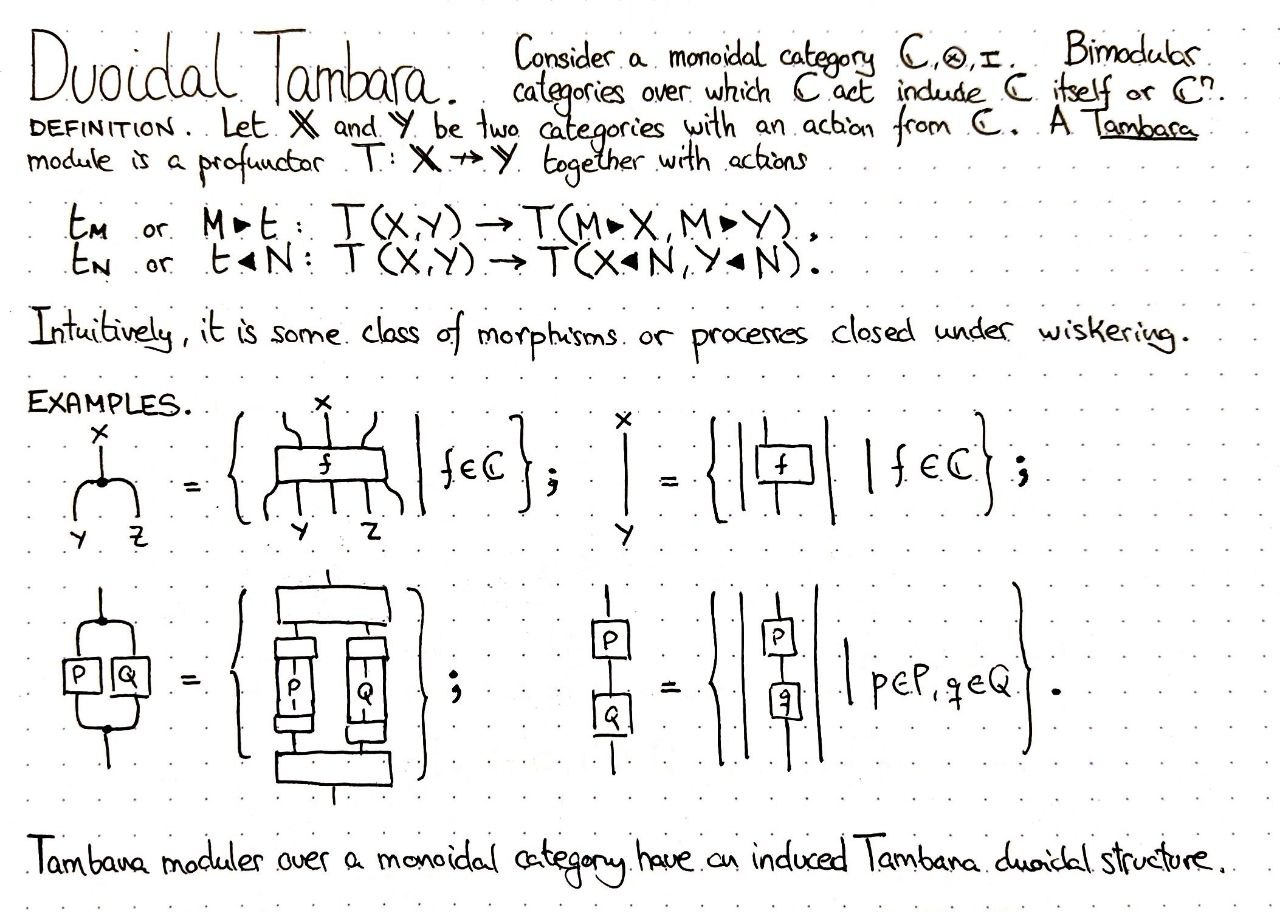 Duoidal Tambara. Consider a monoidal category ℂ,⊗,I. Bimodular
categories over which ℂ act include ℂ itself or ℂⁿ.
DEFINITION. Let 𝕏 and 𝕐 be two categories with an action from ℂ. A Tambara
module is a profunctor T: 𝕏 ⇸ 𝕐 together with actions
t_M or M▸t: T(X,Y) → T(M▸X, M▸Y),
t_N or t◂N: T(X,Y) → T(X◂N, Y◂N).
Intuitively, it is some class of morphisms or processes closed under wiskering.
EXAMPLES.
X Y Z = { X f Y Z | f∈ℂ }; X Y = { f | f∈ℂ };
P Q = { P Q }; P Q = { P q | p∈P, q∈Q }.
Tambara modules over a monoidal category have an induced Tambara duoidal structure.